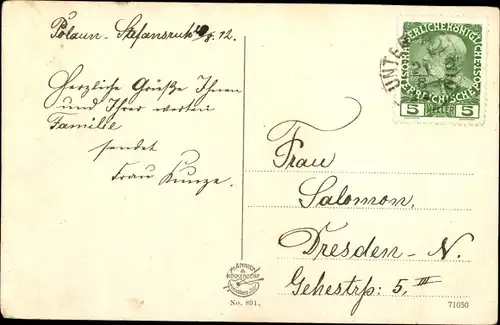 Polaun - Stefansruh
8. 12.
Herzliche Grüße Ihnen
und Ihrer werten
Familie
sendet
Frau Kunze.
KAISERLICHEKÖNIGLICHE
5 5
UNTER
Frau
Salomon,
Dresden-N.
Gehestrß: 5. III
No. 891.
71050